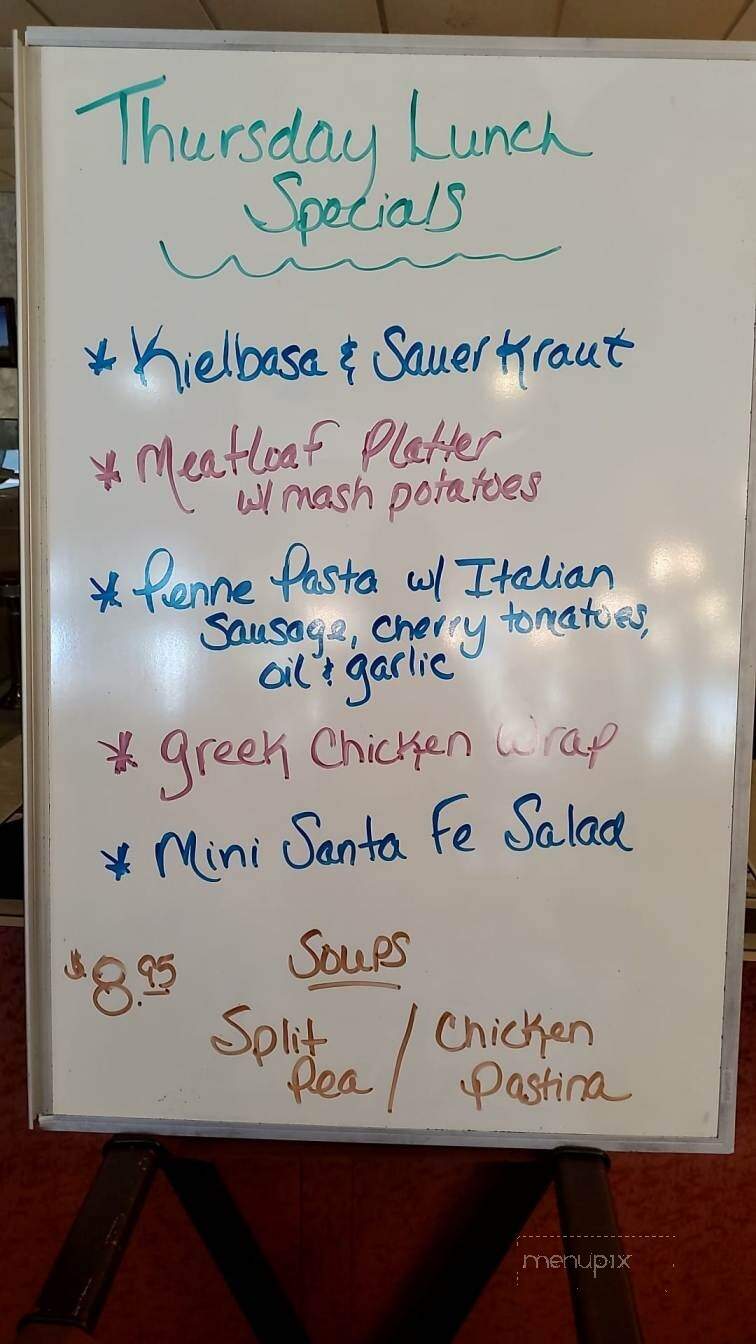 Thursday Lunch
Specials
* Kielbasa & Sauerkraut
* Meatloaf Platter
w/ mash potatoes
* Penne Pasta w/ Italian
Sausage, cherry tomatoes,
oil & garlic
* Greek Chicken Wrap
* Mini Santa Fe Salad
$8.95
Soups
Split / Chicken
Pea Pastina
menupix